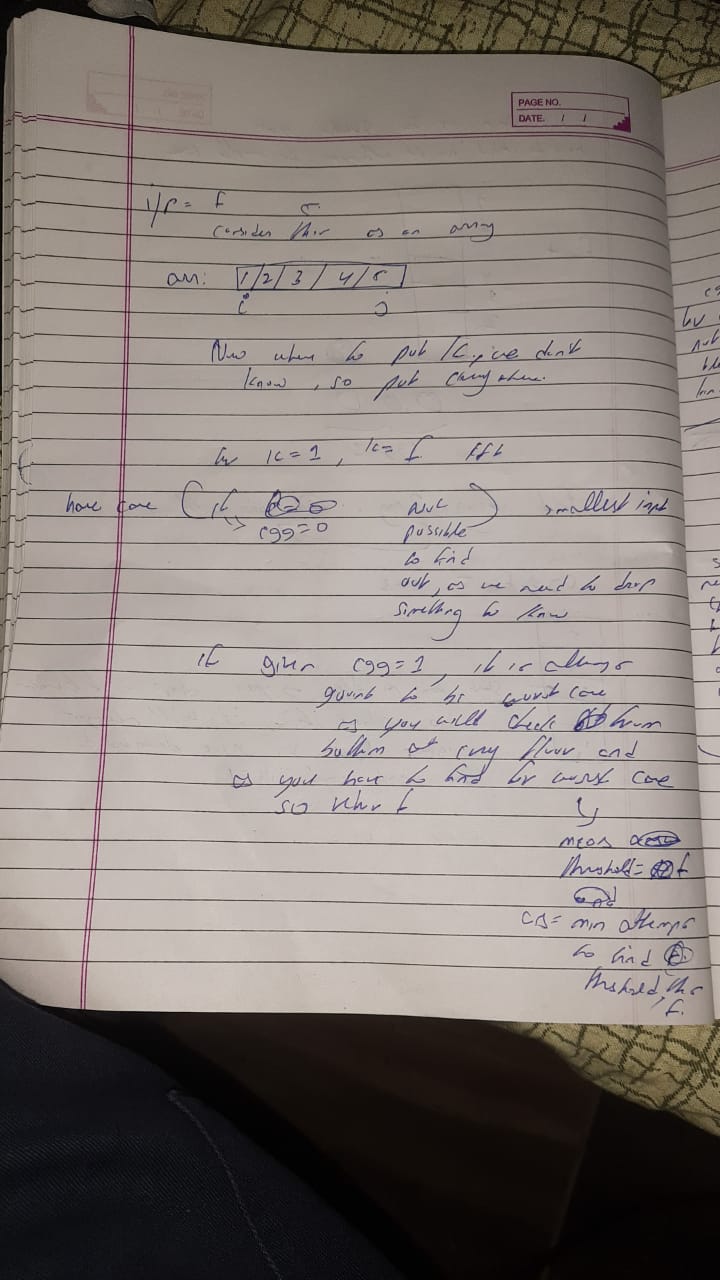 PAGE NO.
DATE. / /
i/p = f
5
Consider this as an array
arr: 1/2/3/4/5
i j
Now where to put k, we don't
know, so put every where.
for k=1, k= f k++
base case ( if egg=0 Not possible to find ) smallest input
out, as we need to drop
something to know
if given egg=1, it is always
going to be worst case
as you will check from
bottom at every floor and
as you have to find for worst case
so return f
means
threshold = f
and
ans = min attempts
to find
threshold, this
f.